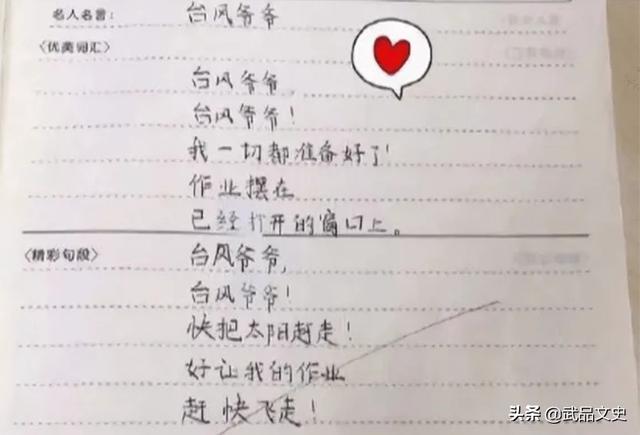 名人名言: 台风爷爷
〈优美词汇〉
台风爷爷,
台风爷爷!
我一切都准备好了!
作业摆在
已经打开的窗口上。
〈精彩句段〉 台风爷爷,
台风爷爷!
快把太阳赶走!
好让我的作业
赶快飞走!
头条 @武品文史